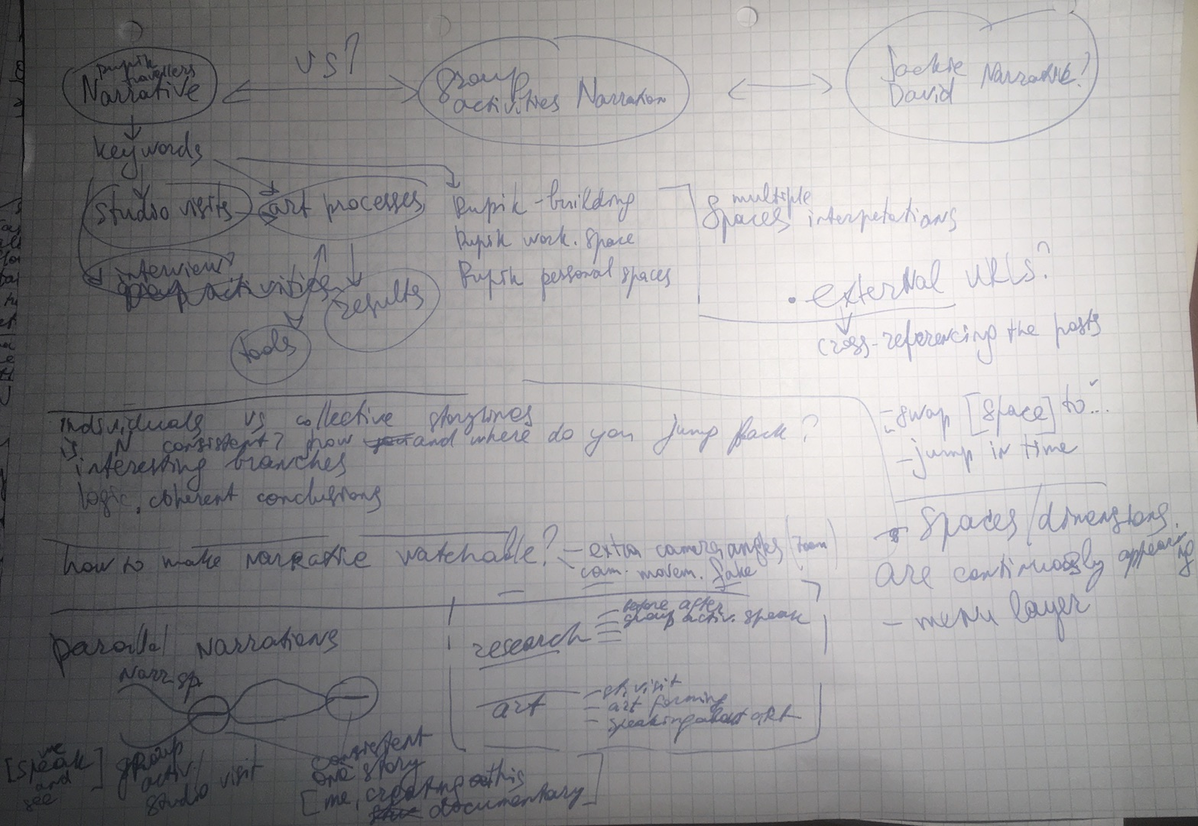 Pupik
travellers
Narrative
vs?
group
activities Narration
Jackie
David Narrative?
keywords
studio visits
art processes
interview?
group activities
results
tools
Pupik-building
Pupik work. space
Pupik personal spaces
multiple
Spaces interpretations
• external URLs?
cross-referencing the posts
individuals vs collective storylines
is N consistent? how and where do you jump back?
interesting branches
logic, coherent conclusions
- swap [space] to...
- jump in time
- spaces/dimensions
are continuously appearing
- menu layer
how to make narrative watchable?
- extra camera angles (zoom)
- cam. movem. fake
parallel narrations
Narr. sp
[me
speak
and
see]
group
activ/
studio visit
consistent
one story
[me, creating this
documentary]
research
before after
group activ. speak
art
- st. visit
- art forming
- speaking about art